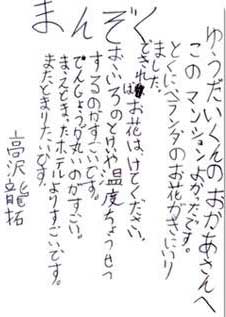 まんぞく
ゆうだいくんのおかあさんへ
このマンションよかったです。
とくにベランダのお花がきにいり
ました。
できればお花はけてください。
おふろのとけいや温度ちょうせつ
するのがすごいです。
でんじょうが丸いのがすごい。
まえとまったホテルよりすごいです。
またとまりたいです。
高沢龍拓